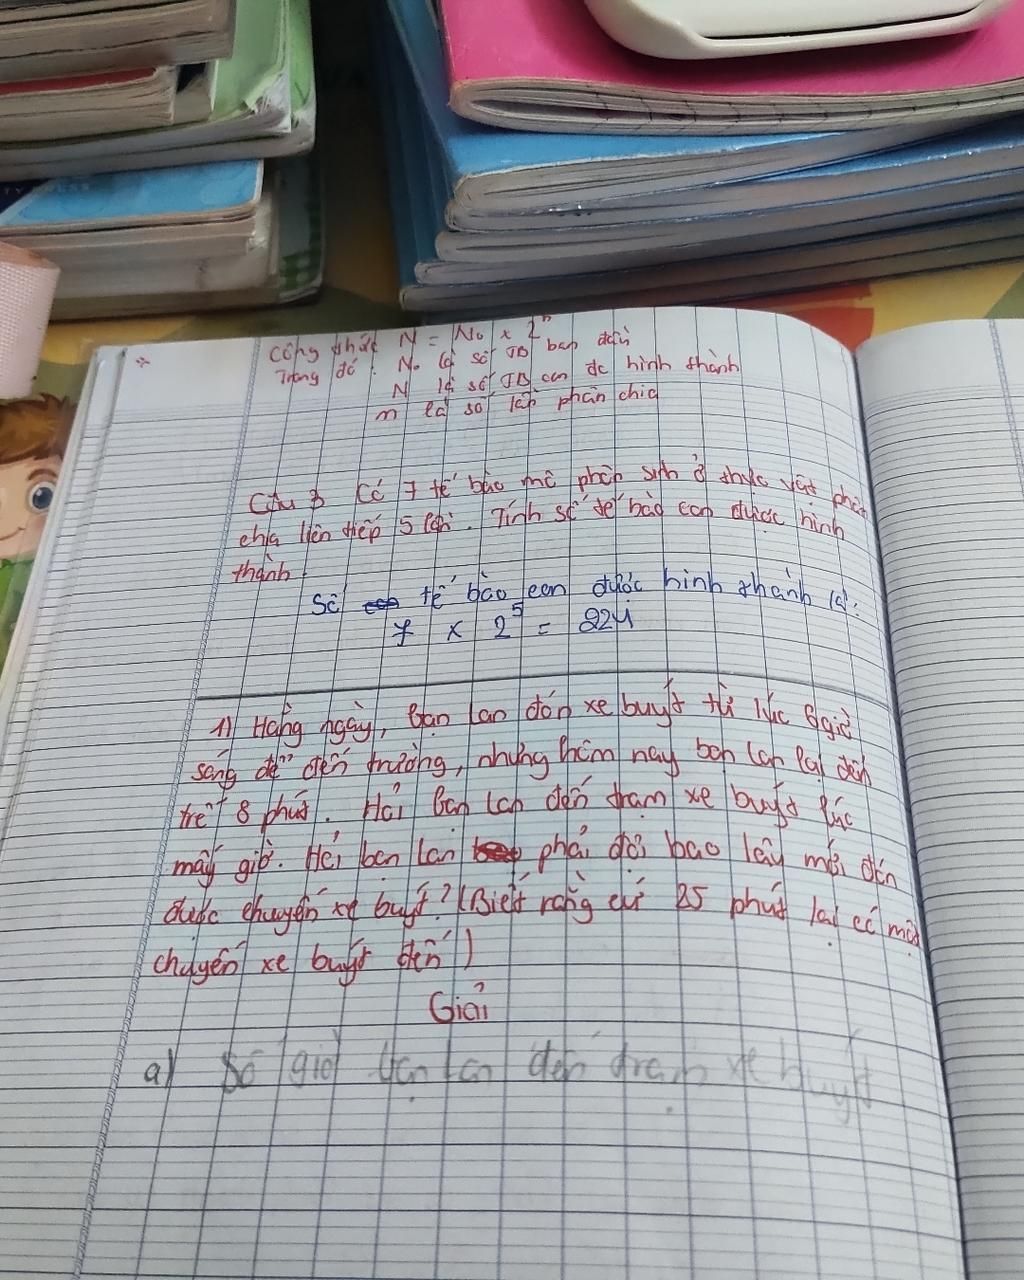 Công thức N = N₀ x 2ⁿ
Trong đó: N₀ là số TB ban đầu
N là số TB con đc hình thành
n là số lần phân chia
Câu 3 Có 7 tế bào mô phân sinh ở thực vật phân
chia liên tiếp 5 lần. Tính số tế bào con được hình
thành.
Số tế bào con được hình thành là:
7 x 2⁵ = 224
1) Hằng ngày, bạn Lan đón xe buýt từ lúc 6 giờ
sáng để đến trường, nhưng hôm nay bạn Lan lại đến
trễ 8 phút. Hỏi bạn Lan đến trạm xe buýt lúc
mấy giờ. Hỏi bạn Lan phải đợi bao lâu mới đón
được chuyến xe buýt? (Biết rằng cứ 25 phút lại có một
chuyến xe buýt đến)
Giải
a) Số giờ bạn Lan đến trạm xe buýt